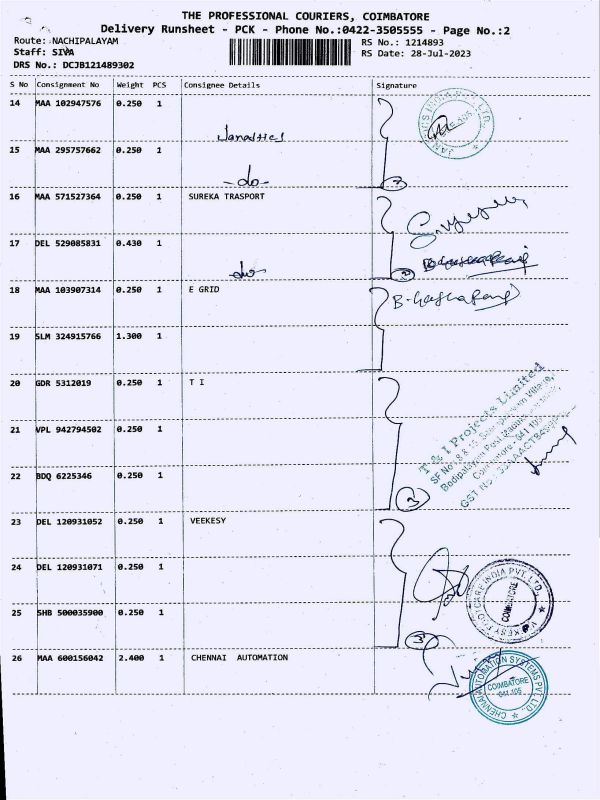 THE PROFESSIONAL COURIERS, COIMBATORE
Delivery Runsheet - PCK - Phone No.:0422-3505555 - Page No.:2
Route: NACHIPALAYAM
RS No.: 1214893
Staff: SIVA
RS Date: 28-Jul-2023
DRS No.: DCJB121489302
S No Consignment No Weight PCS Consignee Details Signature
14 MAA 102947576 0.250 1
15 MAA 295757662 0.250 1
-do-
16 MAA 571527364 0.250 1 SUREKA TRASPORT
17 DEL 529085831 0.430 1
-do-
18 MAA 103907314 0.250 1 E GRID
19 SLM 324915766 1.300 1
20 GDR 5312019 0.250 1 T I
T & I Projects Limited
21 VPL 942794502 0.250 1
22 BDQ 6225346 0.250 1
3
23 DEL 120931052 0.250 1 VEEKESY
24 DEL 120931071 0.250 1
COIMBATORE
25 SHB 500035900 0.250 1
3
26 MAA 600156042 2.400 1 CHENNAI AUTOMATION
CHENNAI AUTOMATION SYSTEMS PVT. LTD.
COIMBATORE
641 105